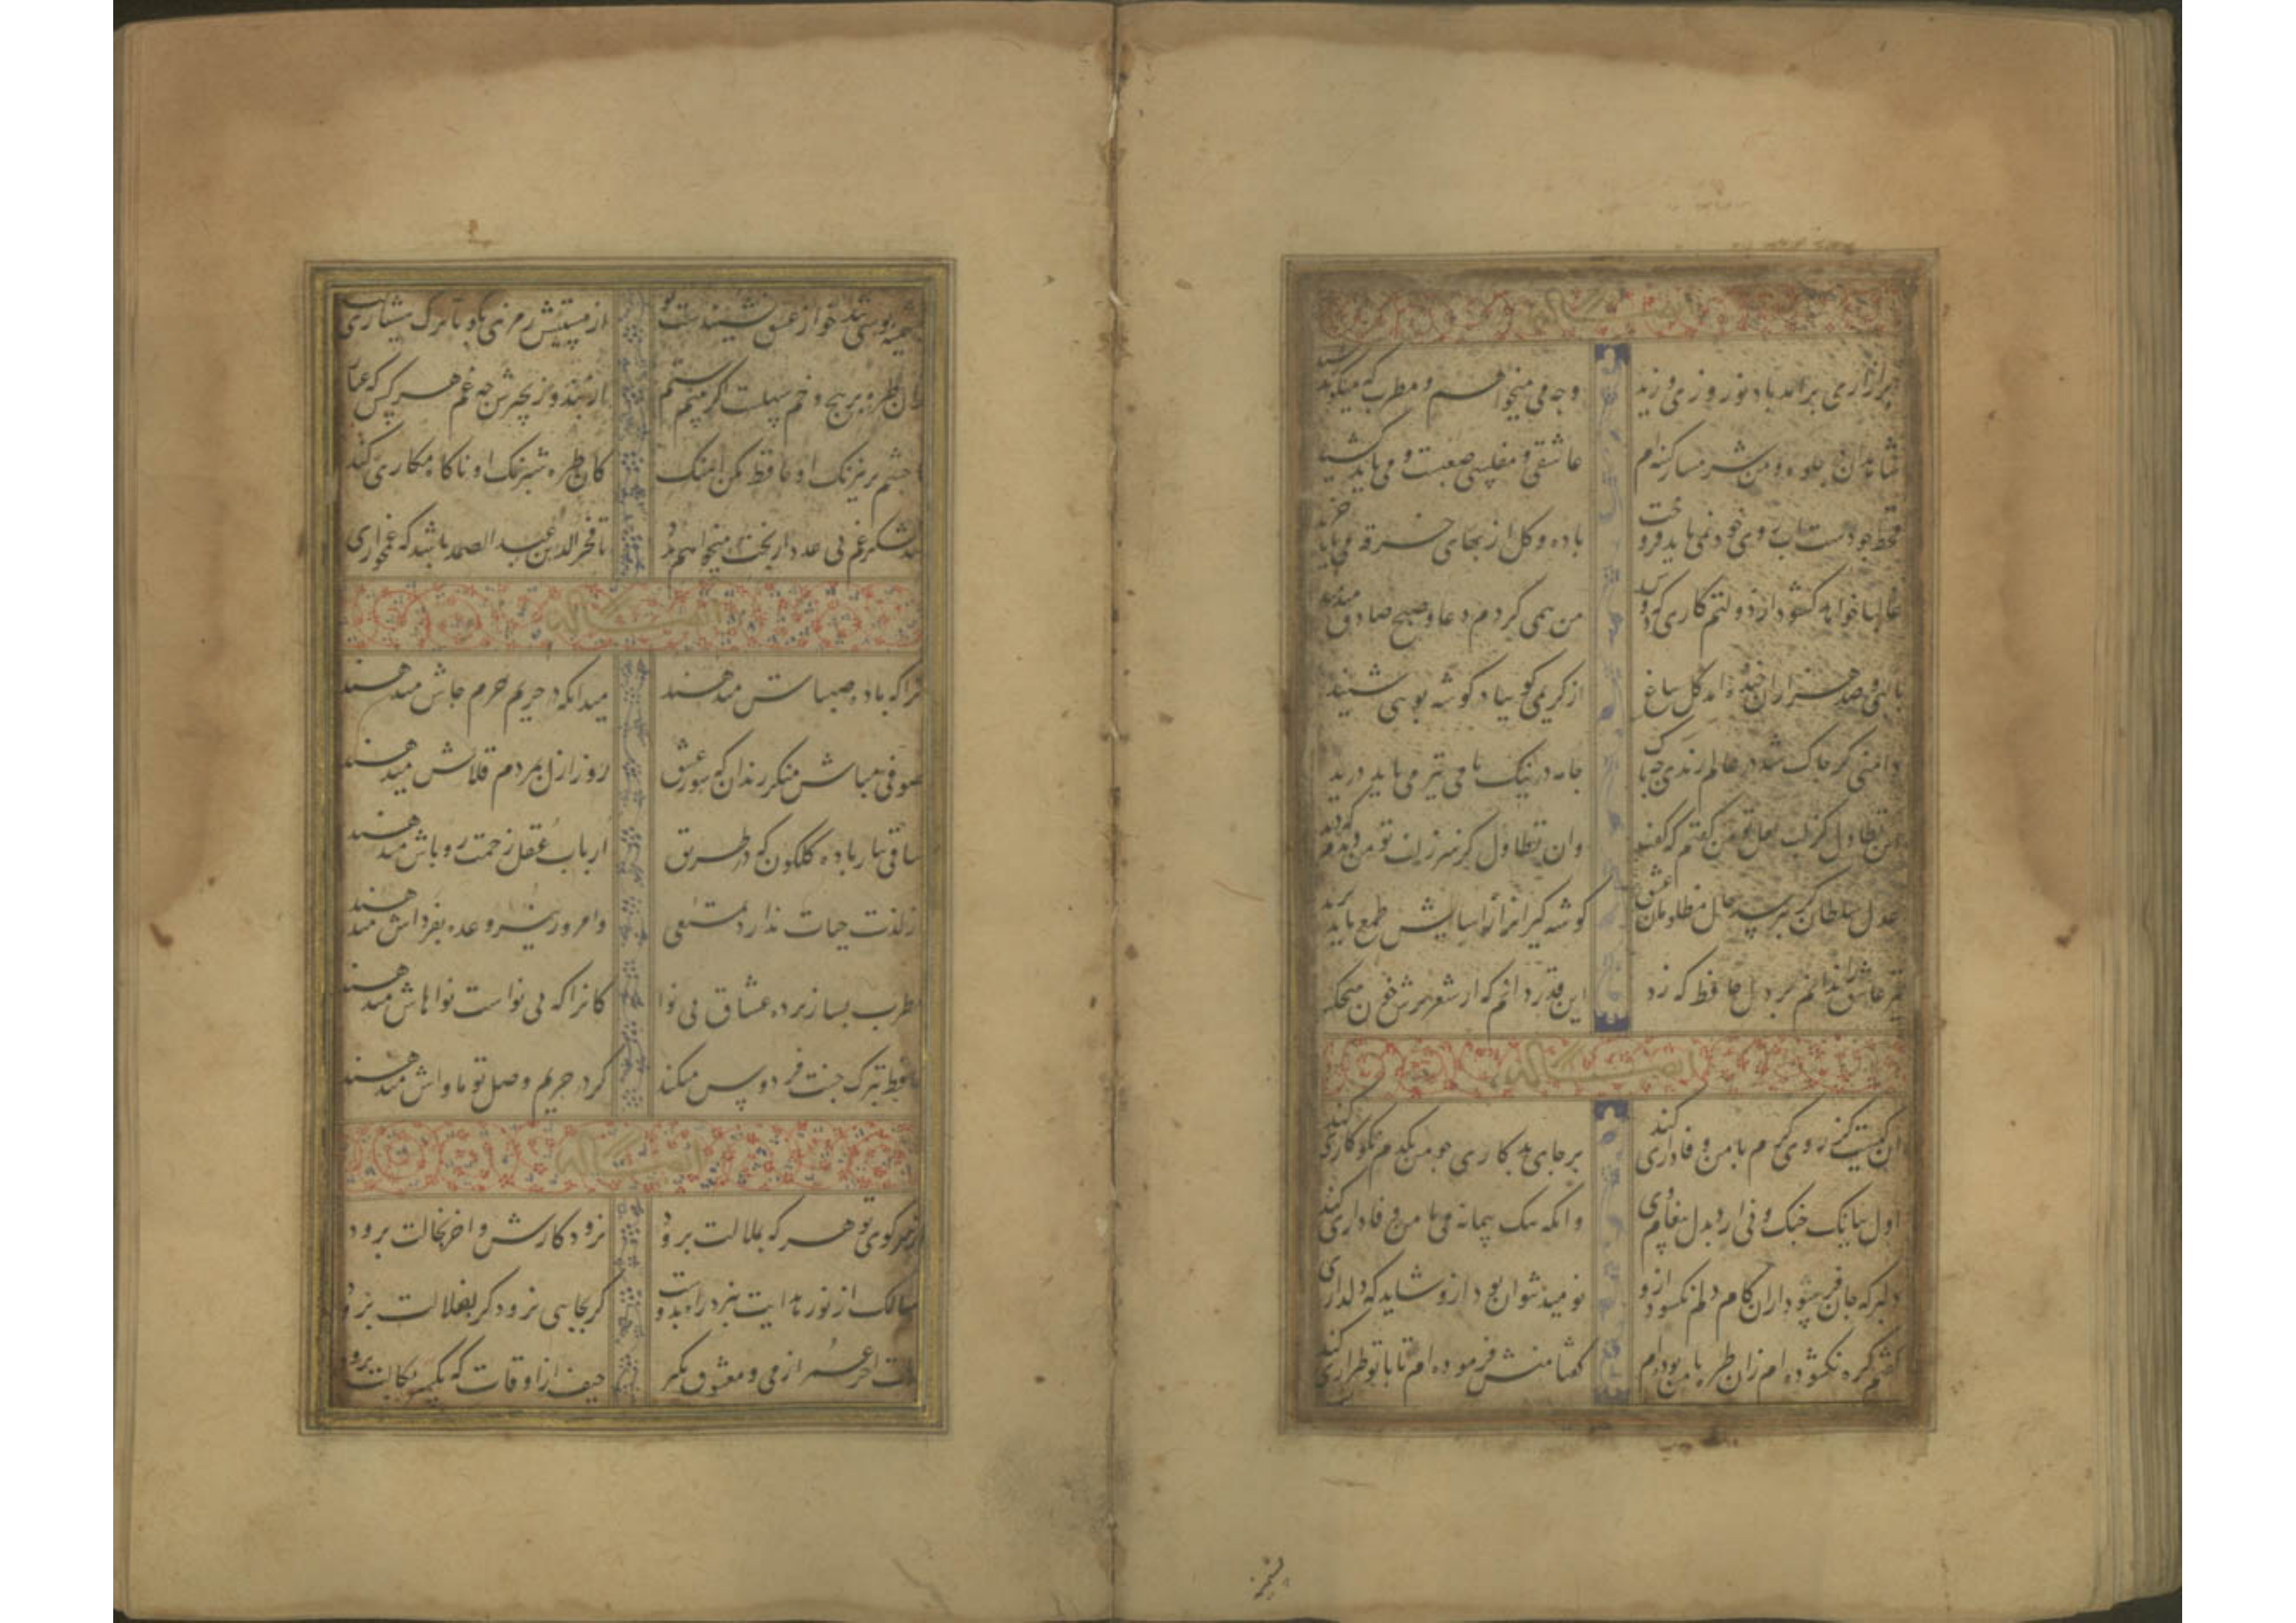 ابر آزاری برآمد باد نوروزی وزید
وجه می میخواهم و مطرب که میگوید رسید
شاهدان در جلوه و من شرمسار کیسه‌ام
عاشقی و مفلسی صعبست و می باید کشید
قحط جودست آب روی خود نمی باید فروخت
باده و گل از بهای خرقه می باید خرید
غالبا خواهد گشود از دولتم کاری که دوش
من همی کردم دعا و صبح صادق میدمید
با لبی و صد هزاران خنده آمد گل بباغ
از کریمی گوییا در گوشه بویی شنید
دامنی گر چاک شد در عالم رندی چه باک
جامه در نیک نامی نیز می باید درید
این تطاول کز لب لعل تو من گفتم که گفت
وان تطاول کز سر زلف تو من دیدم که دید
عدل سلطان گر نپرسد حال مظلومان عشق
گوشه گیرانرا ز آسایش طمع باید برید
تیر عاشق کش ندانم بر دل حافظ که زد
این قدر دانم که از شعر ترش خون میچکید
آن کیست کز روی کرم با من وفاداری کند
بر جای بدکاری چو من یکدم نکوکاری کند
اول ببانگ چنگ و نی آرد بدل پیغام وی
وانگه بیک پیمانه می با من وفاداری کند
دلبر که جان فرسود ازو کام دلم نگشود ازو
نومید نتوان بود ازو شاید که دلداری کند
گفتم گره نگشوده‌ام زان طره تا من بوده‌ام
گفتا منش فرموده‌ام تا با تو طراری کند
پشمینه پوش تند خو از عشق نشنیدست بو
از مستیش رمزی بگو تا ترک هشیاری
زان طره پر پیچ و خم سهلست اگر بینم ستم
از بند و زنجیرش چه غم هر کس که عیا
با چشم پر نیرنگ او حافظ مکن آهنگ
کان طره شبرنگ او ناگاه مکاری کند
شد لشکر غم بی عدد از بخت میخواهم مدد
تا فخر الدین عبد الصمد باشد که غمخواری
آنرا که باده صبحاش میدهند
میدانکه در حریم حرم جاش میدهند
صوفی مباش منکر رندان که سور عشق
روز ازل بمردم قلاش میدهند
ساقی بیار باده گلگون که در طریق
ارباب عقل زحمت روباش میدهند
از لذت حیات ندارد تمتعی
و امروز نیز وعده بفرداش میدهند
مطرب بساز پرده عشاق بی نوا
کانرا که بی نواست نواهاش میدهند
حافظ بترک جنت فردوس میکند
گر در حریم وصل تو ماواش میدهند
از سر کوی تو هر که بملالت برود
نرود کارش و آخر بخجالت برود
سالک از نور هدایت ببرد راه بدوست
که بجایی نرسد گر بضلالت برود
آخر عمر از می و معشوق بگیر
حیف از اوقات که یکسر ببطالت برود